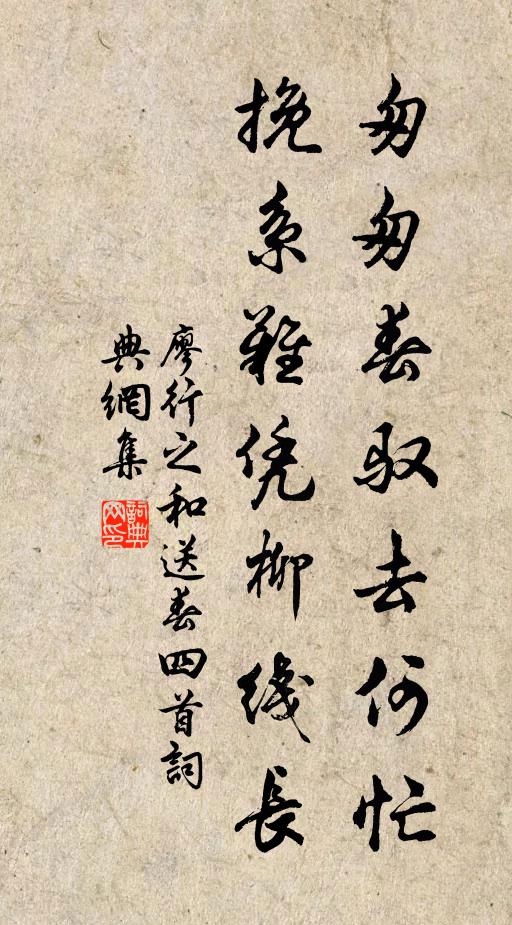 匆匆春驭去何忙
挽系難凭柳线長
廖行之和送春四首詞
典網集
詞典
网印